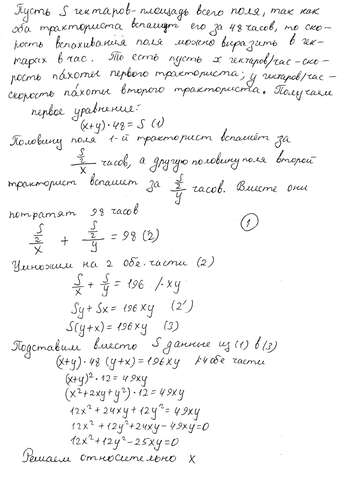 Пусть S гектаров-площадь всего поля, так как
оба тракториста вспашут его за 48 часов, то ско-
рость вспахивания поля можно выразить в гек-
тарах в час. То есть пусть x гектаров/час-ско-
рость пахоты первого тракториста; y гектаров/час-
скорость пахоты второго тракториста. Получаем
первое уравнения:
(x+y)·48=S (1)
Половину поля 1-й тракторист вспашет за
S/2/x часов, а другую половину поля второй
тракторист вспашет за S/2/y часов. Вместе они
потратят 98 часов
S/2/x + S/2/y = 98 (2)
1
Умножим на 2 обе части (2)
S/x + S/y = 196 /·xy
Sy+Sx=196xy (2')
S(y+x)=196xy (3)
Подставим вместо S данные из (1) в (3)
(x+y)·48(y+x)=196xy /:4 обе части
(x+y)²·12=49xy
(x²+2xy+y²)·12=49xy
12x²+24xy+12y²=49xy
12x²+12y²+24xy-49xy=0
12x²+12y²-25xy=0
Решаем относительно x